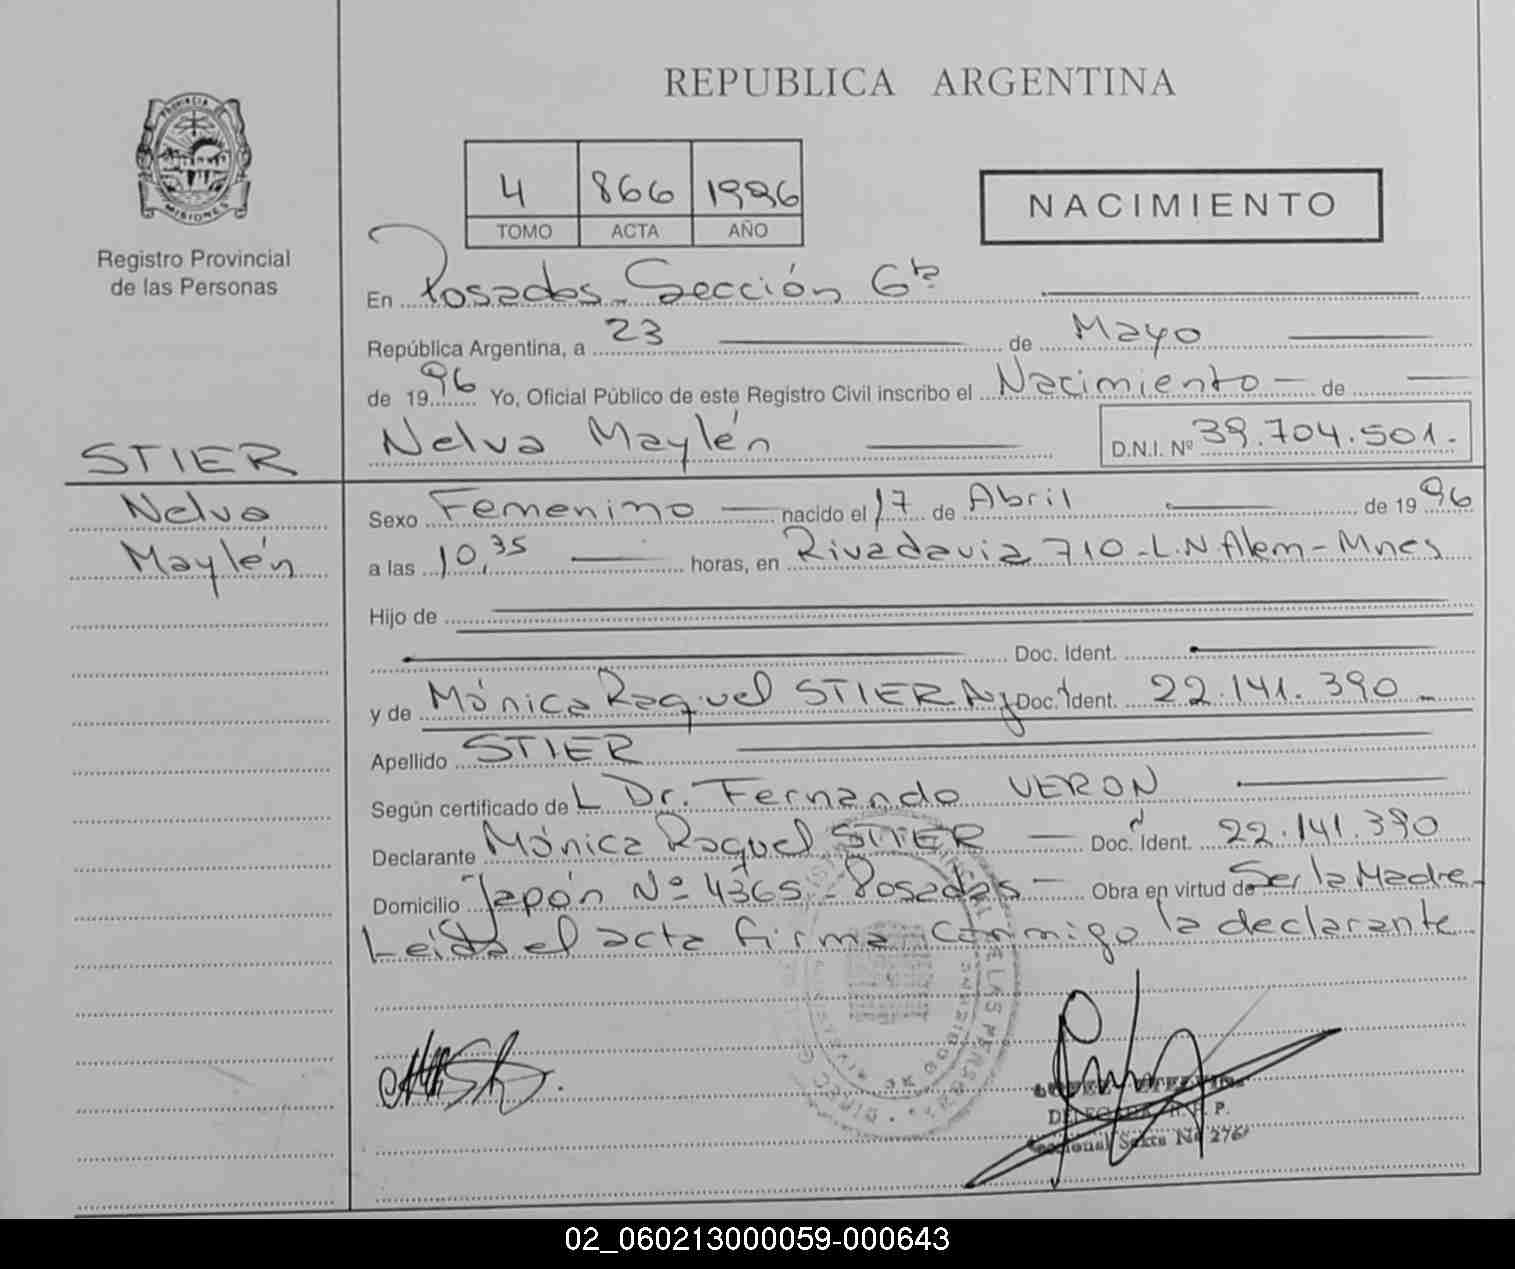 REPUBLICA ARGENTINA
PROVINCIA DE
MISIONES
Registro Provincial
de las Personas
4 866 1996
TOMO ACTA AÑO
NACIMIENTO
En Posadas Sección 6ta
República Argentina, a 23 de Mayo
de 1996 Yo, Oficial Público de este Registro Civil inscribo el Nacimiento - de
Nelva Maylén D.N.I. Nº 39.704.501.-
STIER
Nelva
Maylén
Sexo Femenino nacido el 17 de Abril de 1996
a las 10,35 horas, en Rivadavia 710-L.N Alem-Mnes
Hijo de
Doc. Ident.
y de Mónica Raquel STIER Arg Doc. Ident. 22.141.390 -
Apellido STIER
Según certificado de L Dr. Fernando VERON
Declarante Mónica Raquel STIER - Doc. Ident. 22.141.390
Domicilio Japón Nº 4365 - Posadas - Obra en virtud de Ser la Madre-
Leída el acta firma conmigo la declarante
DELEGADA R. P. P.
Seccional Sexta Nº 276
02_060213000059-000643